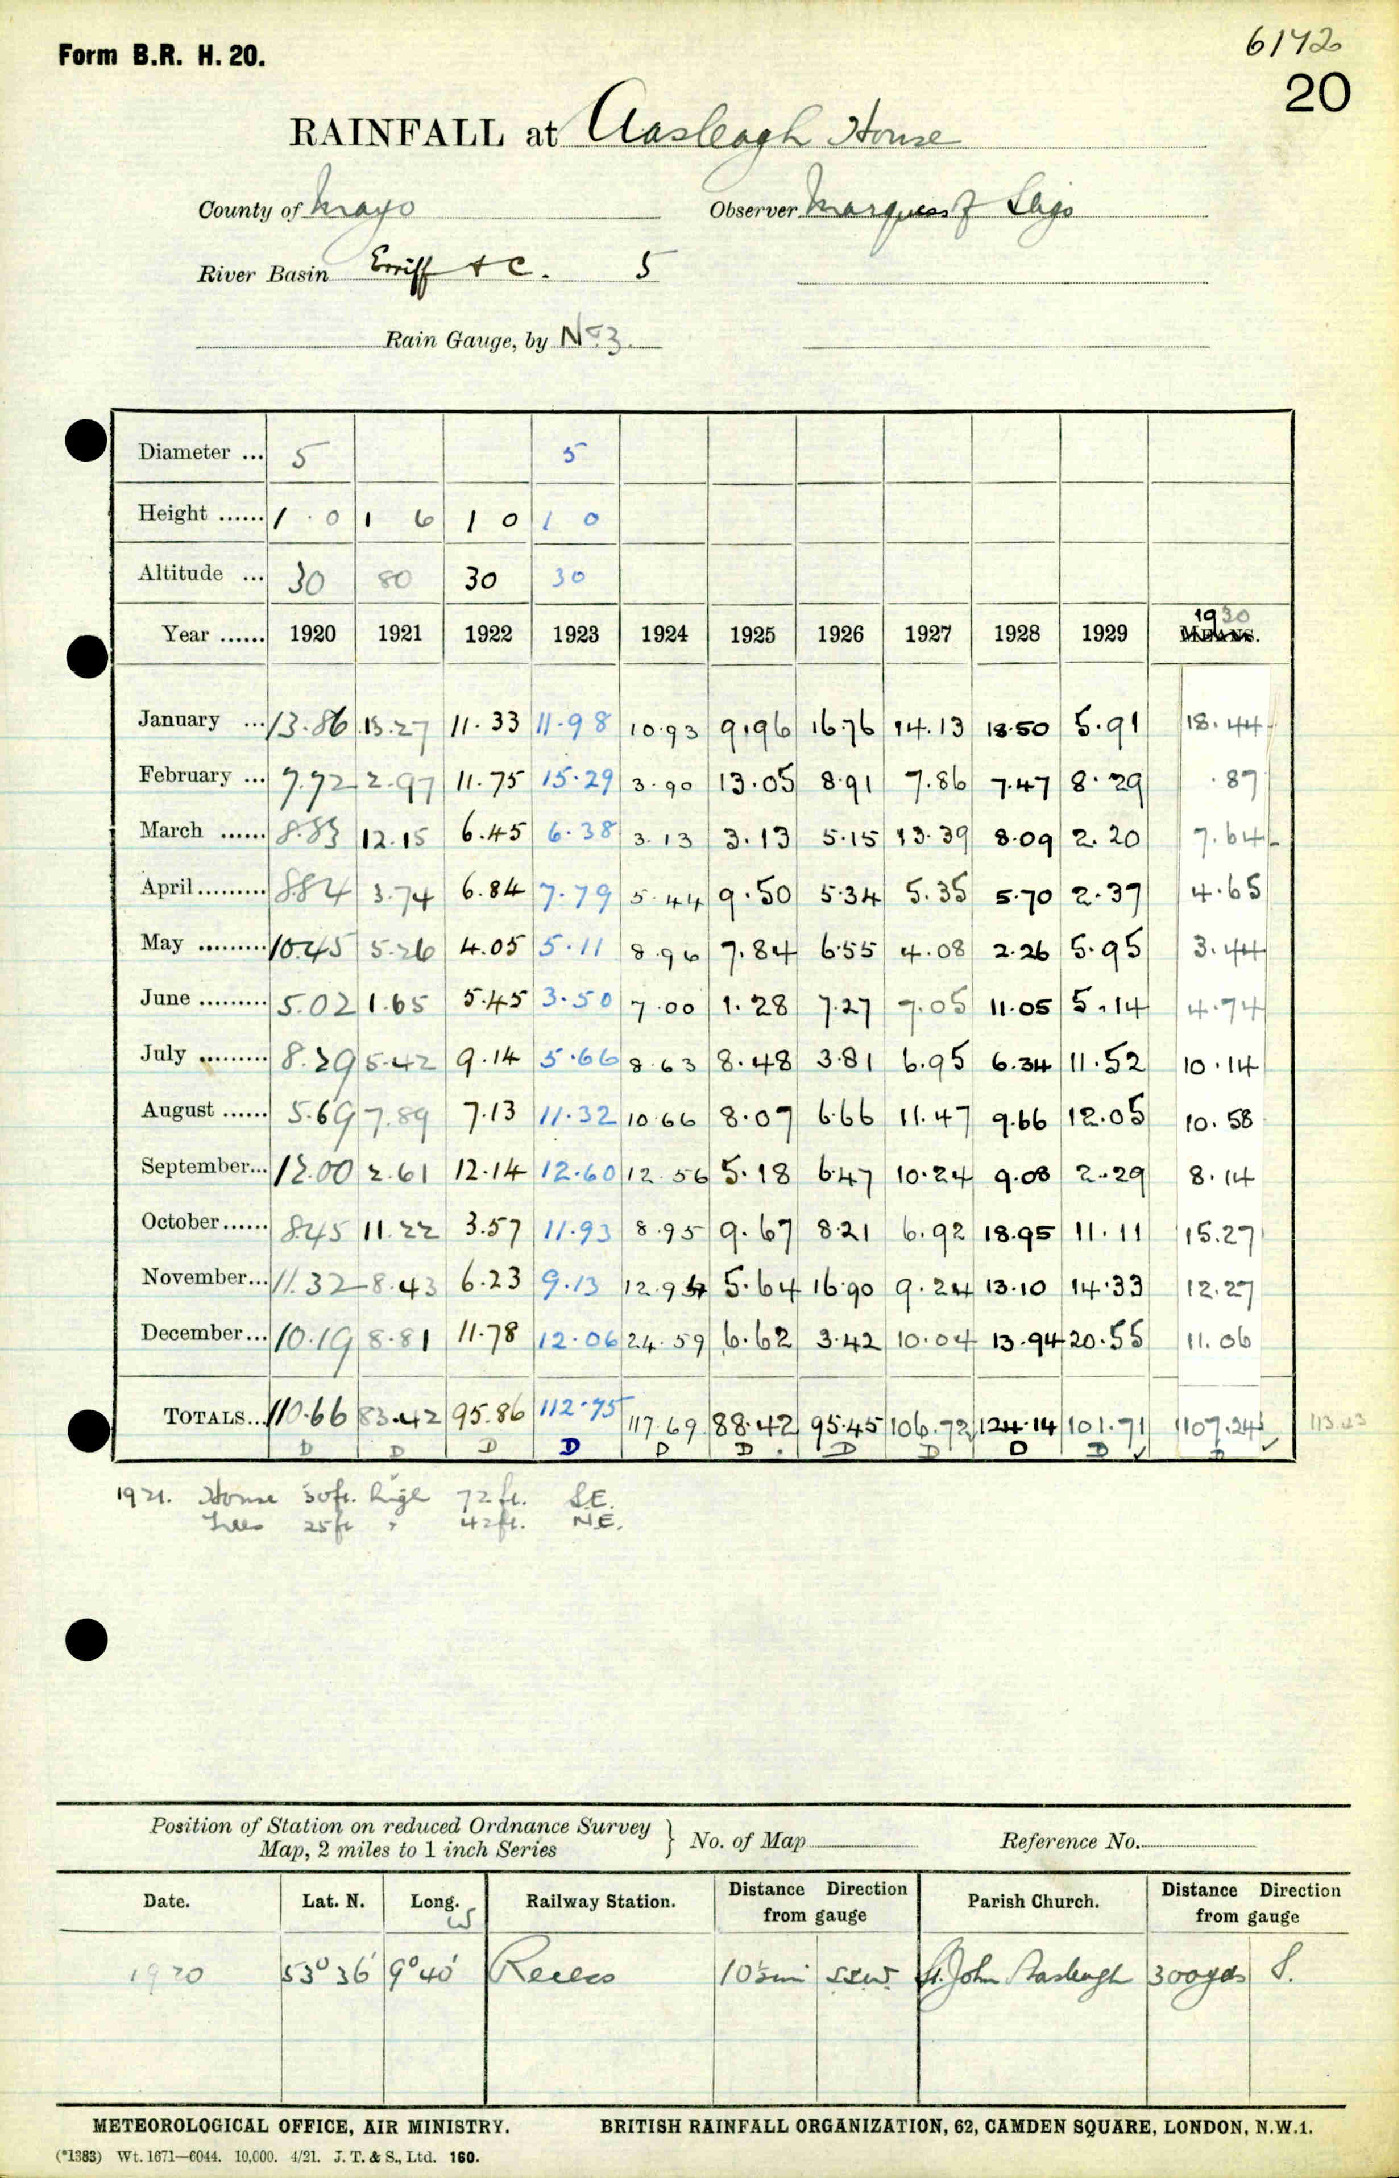 Form B.R. H. 20.
6142
20
RAINFALL at Aasleagh House
County of Mayo Observer Marquess of Sligo
River Basin Erriff & C. 5
Rain Gauge, by No 3.
Diameter ... 5 5
Height ...... 1 . 0 1 6 1 0 1 0
Altitude ... 30 80 30 30
Year ...... 1920 1921 1922 1923 1924 1925 1926 1927 1928 1929 1930 MEANS.
January ... 13.86 13.27 11.33 11.98 10.93 9.96 16.76 14.13 18.50 5.91 18.44
February ... 7.72 2.97 11.75 15.29 3.90 13.05 8.91 7.86 7.47 8.29 .87
March ...... 8.83 12.15 6.45 6.38 3.13 3.13 5.15 13.39 8.09 2.20 7.64
April ......... 8.84 3.74 6.84 7.79 5.44 9.50 5.34 5.35 5.70 2.37 4.65
May ......... 10.45 5.26 4.05 5.11 8.96 7.84 6.55 4.08 2.26 5.95 3.44
June ......... 5.02 1.65 5.45 3.50 7.00 1.28 7.27 7.05 11.05 5.14 4.74
July ......... 8.29 5.42 9.14 5.66 8.63 8.48 3.81 6.95 6.34 11.52 10.14
August ...... 5.69 7.89 7.13 11.32 10.66 8.07 6.66 11.47 9.66 12.05 10.58
September... 12.00 2.61 12.14 12.60 12.56 5.18 6.47 10.24 9.08 2.29 8.14
October...... 8.45 11.22 3.57 11.93 8.95 9.67 8.21 6.92 18.95 11.11 15.27
November... 11.32 8.43 6.23 9.13 12.94 5.64 16.90 9.24 13.10 14.33 12.27
December... 10.19 8.81 11.78 12.06 24.59 6.62 3.42 10.04 13.94 20.55 11.06
TOTALS... 110.66 83.42 95.86 112.75 117.69 88.42 95.45 106.72 124.14 101.71 107.24 113.23
D D D D D D D D D D ✓ D ✓
1921. House 30ft. high 72ft. S.E.
Trees 25ft " 42ft. N.E.
Position of Station on reduced Ordnance Survey
Map, 2 miles to 1 inch Series } No. of Map Reference No.
Date. Lat. N. Long. W Railway Station. Distance Direction from gauge Parish Church. Distance Direction from gauge
1920 53° 36' 9° 40' Recess 10½mi SSW St. John Aasleagh 300yds S.
METEOROLOGICAL OFFICE, AIR MINISTRY. BRITISH RAINFALL ORGANIZATION, 62, CAMDEN SQUARE, LONDON, N.W.1.
(*1383) Wt. 1671—6044. 10,000. 4/21. J. T. & S., Ltd. 160.